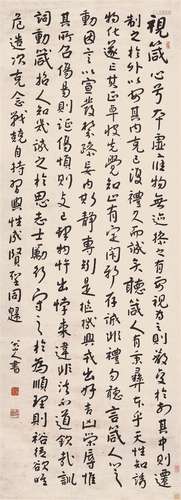 視箴心兮本虛應物無迹操之有要視為之則蔽交於前其中則遷
制之於外以安其內克己復禮久而誠矣聽箴人有秉彝本乎天性知誘
物化遂亡其正卓彼先覺知止有定閑邪存誠非禮勿聽言箴人心之
動因言以宣發禁躁妄內斯靜專矧是樞機興戎出好吉凶榮辱惟
其所召傷易則誕傷煩則支己肆物忤出悖來違非法不道欽哉訓
詞動箴哲人知幾誠之於思志士勵行守之於為順理則裕從欲惟
危造次克念戰兢自持習與性成賢聖同歸 八大山人書